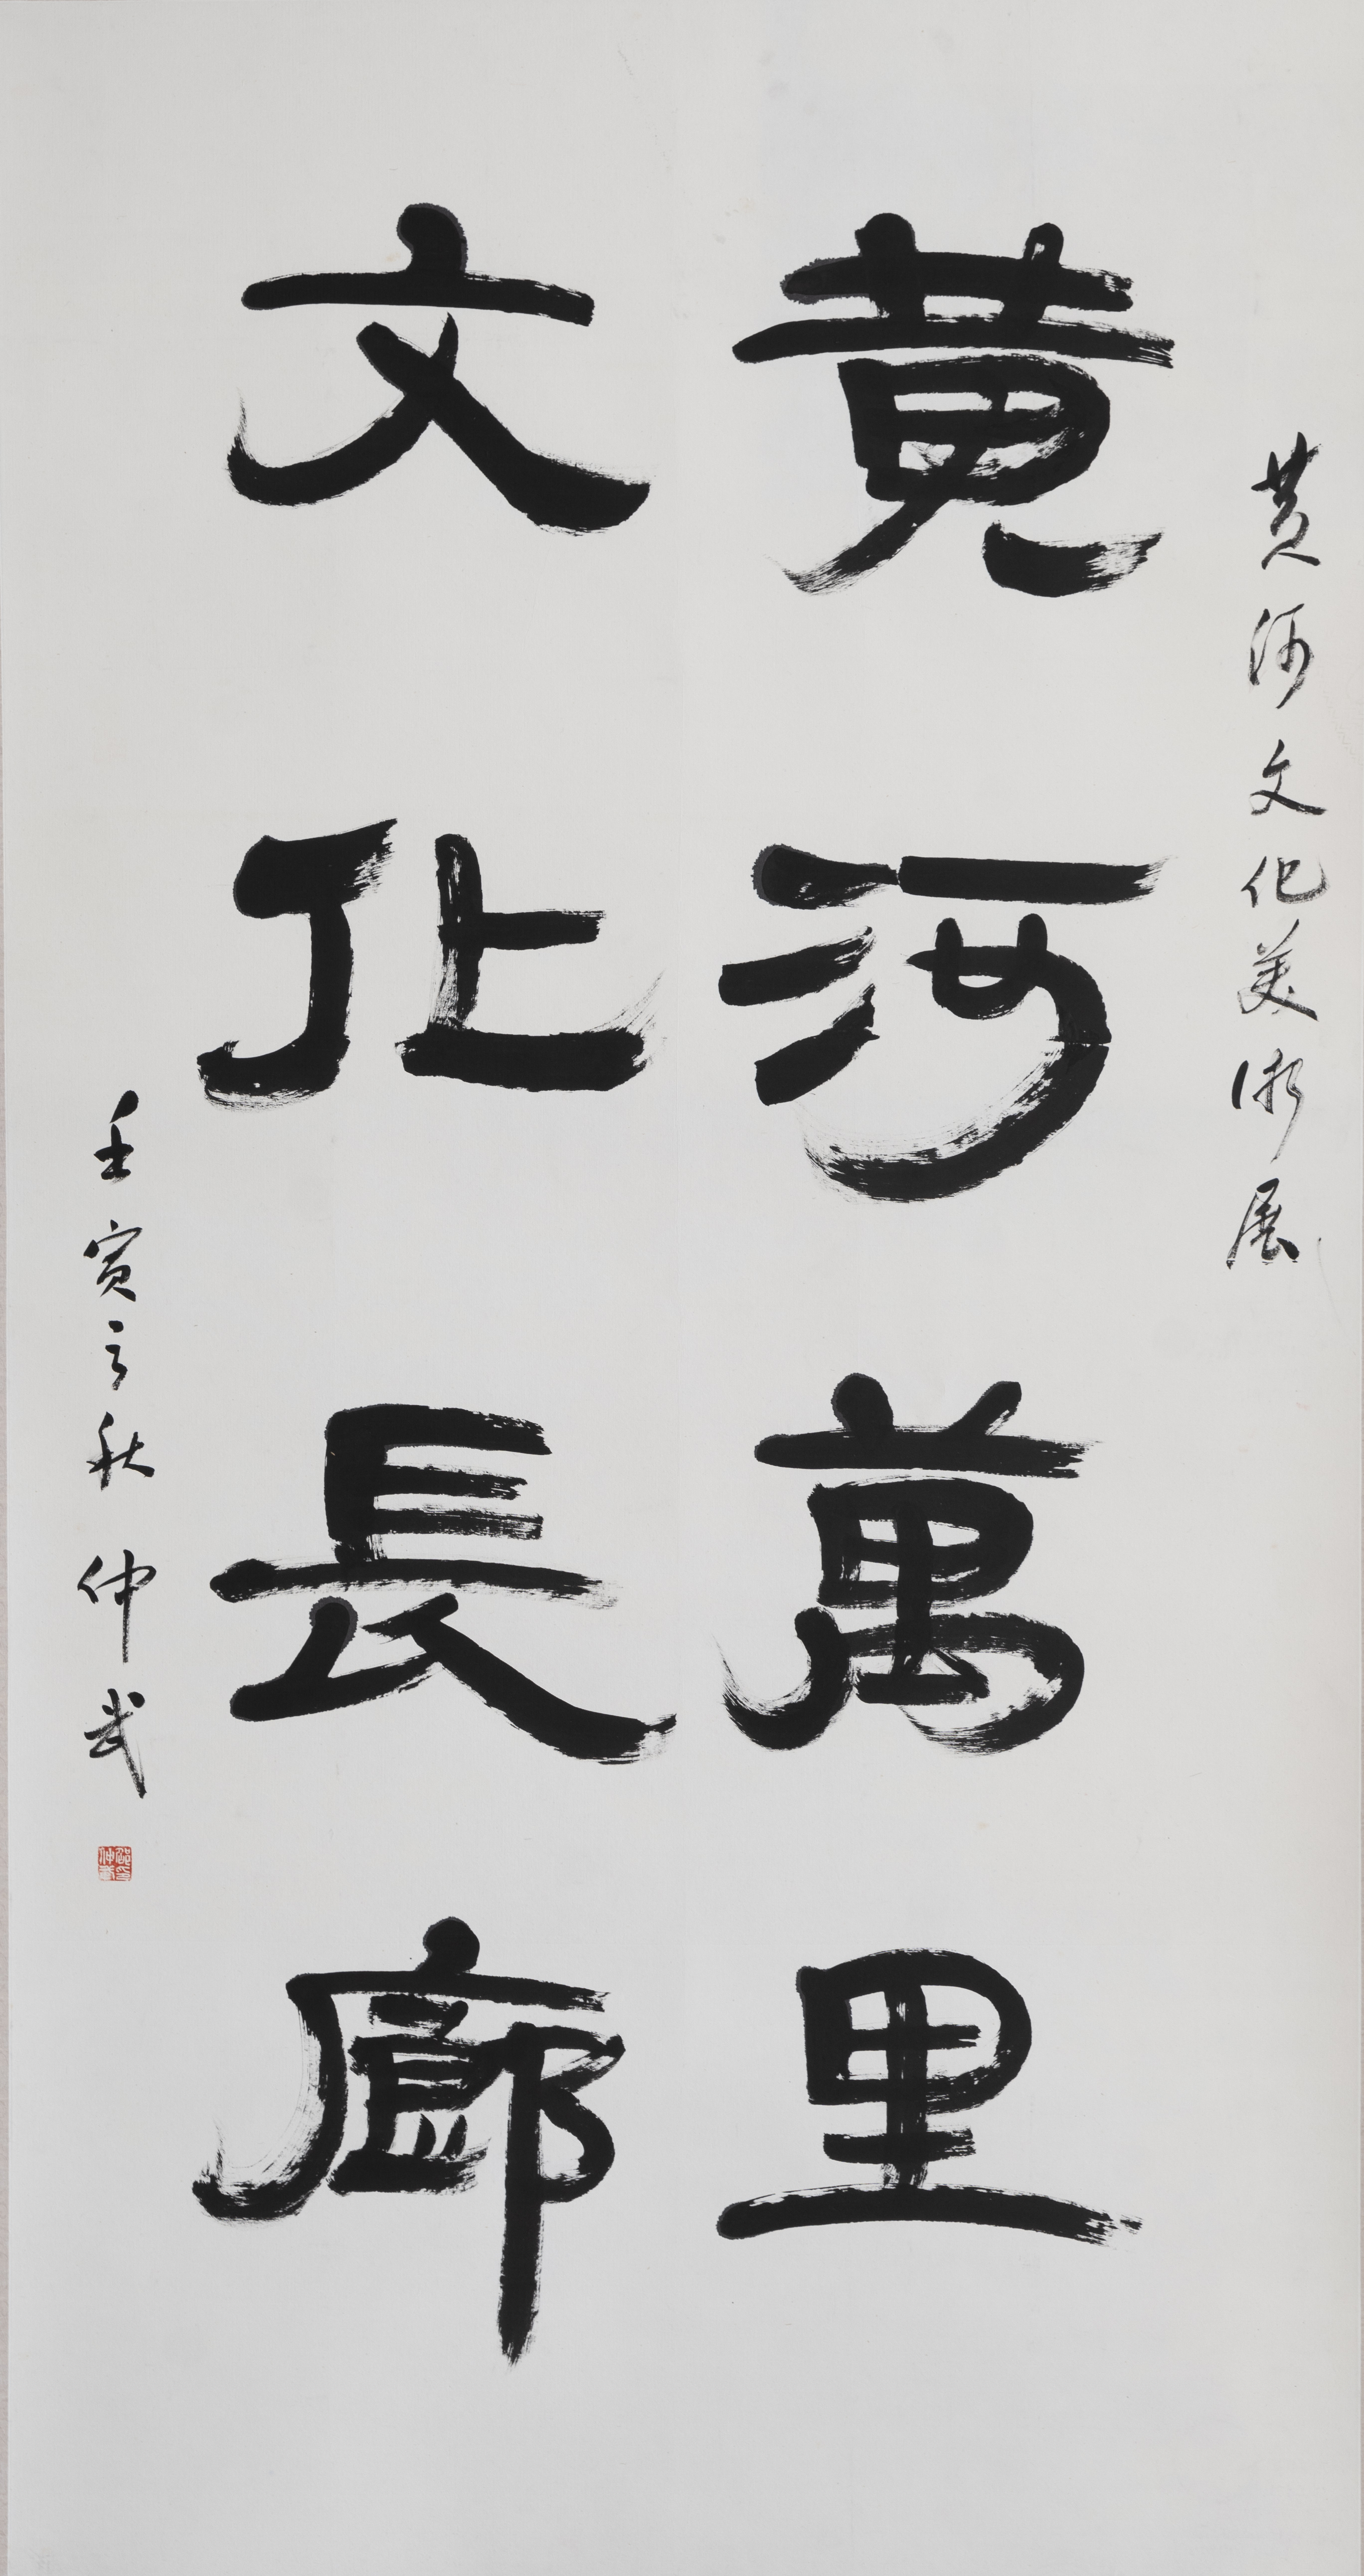 黄河文化美术展
黄河萬里
文化長廊
壬寅之秋 仲武